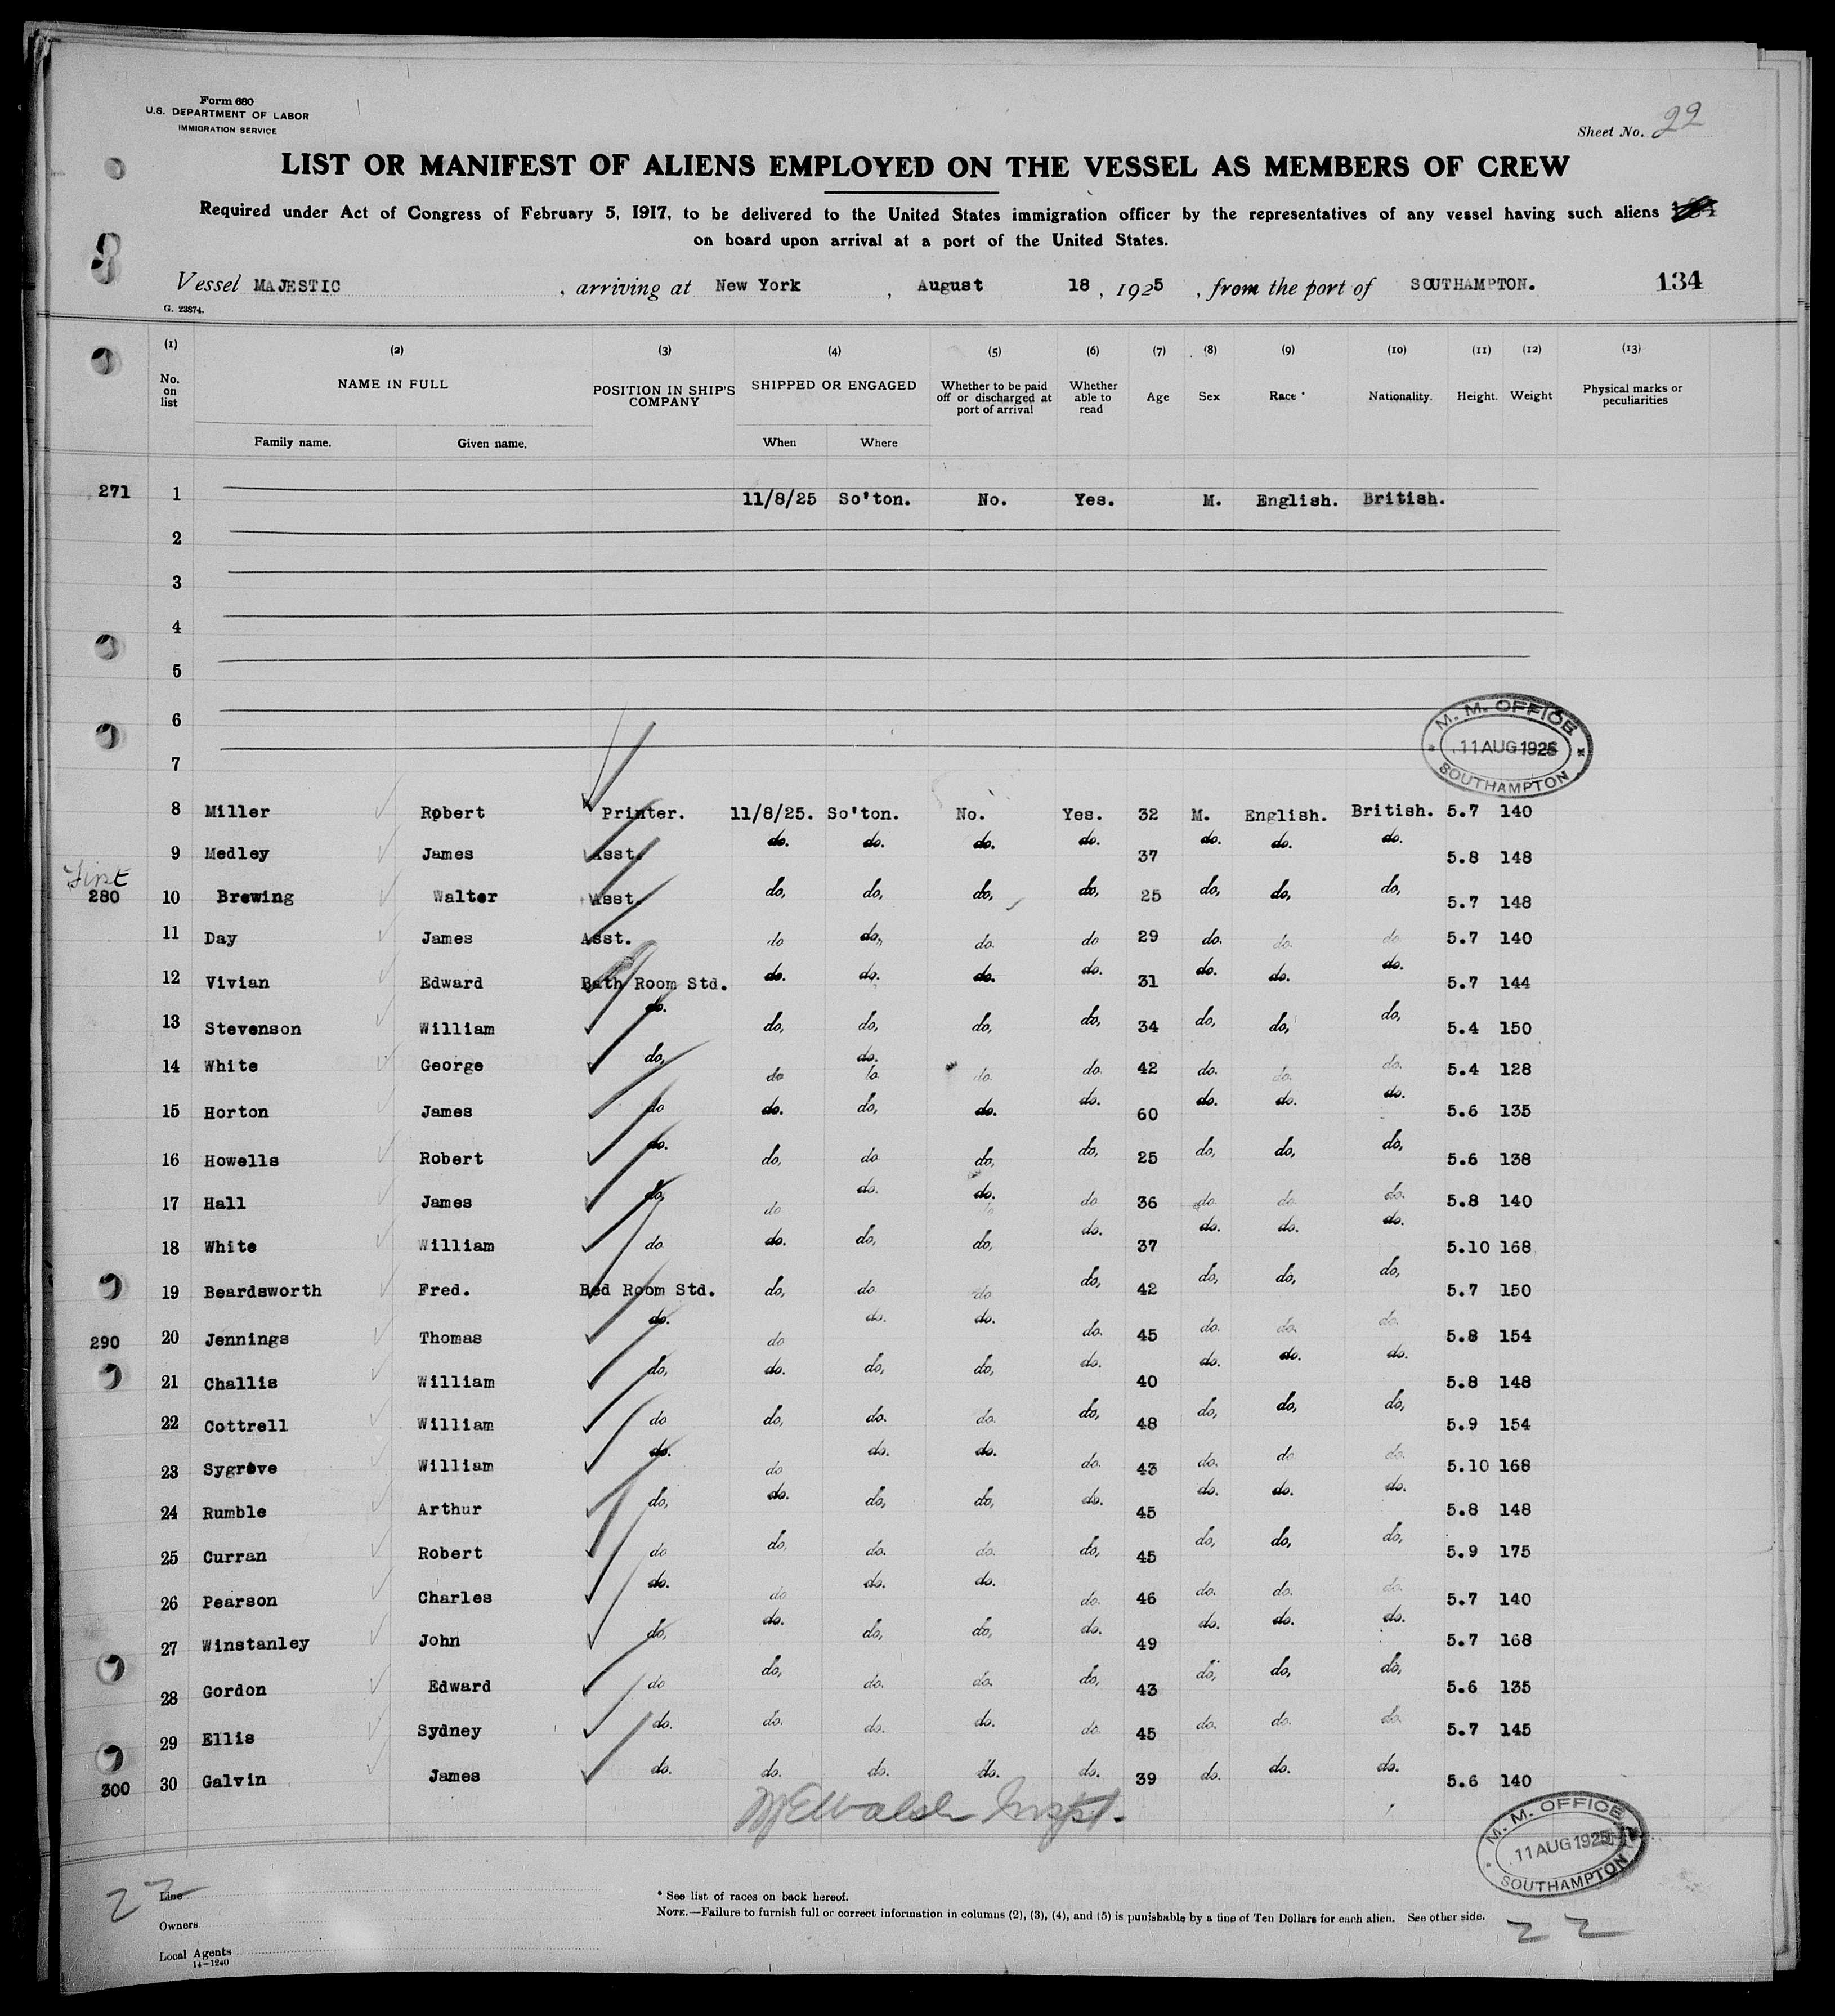 Form 680
U.S. DEPARTMENT OF LABOR
IMMIGRATION SERVICE
Sheet No. 22
LIST OR MANIFEST OF ALIENS EMPLOYED ON THE VESSEL AS MEMBERS OF CREW
Required under Act of Congress of February 5, 1917, to be delivered to the United States immigration officer by the representatives of any vessel having such aliens
on board upon arrival at a port of the United States.
Vessel MAJESTIC, arriving at New York, August 18, 1925, from the port of SOUTHAMPTON. 134
G. 23874.
(1) (2) (3) (4) (5) (6) (7) (8) (9) (10) (11) (12) (13)
No. on list NAME IN FULL POSITION IN SHIP'S COMPANY SHIPPED OR ENGAGED Whether to be paid off or discharged at port of arrival Whether able to read Age Sex Race * Nationality. Height. Weight Physical marks or peculiarities
Family name. Given name. When Where
271 1 11/8/25 So'ton. No. Yes. M. English. British.
2
3
4
5
6
7
M. M. OFFICE 11 AUG 1925 SOUTHAMPTON
8 Miller Robert Printer. 11/8/25. So'ton. No. Yes. 32 M. English. British. 5.7 140
9 Medley James Asst. do. do. do. do. 37 do. do. do. 5.8 148
First
280 10 Brewing Walter Asst. do, do, do, do, 25 do, do, do, 5.7 148
11 Day James Asst. do do, do. do 29 do. do. do. 5.7 140
12 Vivian Edward Bath Room Std. do. do. do. do. 31 do. do. do. 5.7 144
13 Stevenson William do. do, do, do, do, 34 do, do, do, 5.4 150
14 White George do, do do. do. do. 42 do. do. do. 5.4 128
15 Horton James do do. do, do. do. 60 do. do. do. 5.6 135
16 Howells Robert do. do, do do, do, 25 do, do, do, 5.6 138
17 Hall James do, do do. do. do 36 do do do. 5.8 140
18 White William do do. do, do, do. 37 do. do. do. 5.10 168
19 Beardsworth Fred. Bed Room Std. do, do do do, 42 do, do, do, 5.7 150
290 20 Jennings Thomas do. do do. do. do. 45 do. do. do. 5.8 154
21 Challis William do, do. do, do, do. 40 do. do. do. 5.8 148
22 Cottrell William do do, do. do. do, 48 do, do, do, 5.9 154
23 Sygrove William do. do do. do. do. 43 do. do do. 5.10 168
24 Rumble Arthur do, do. do, do, do. 45 do. do. do. 5.8 148
25 Curran Robert do do, do. do. do, 45 do, do, do, 5.9 175
26 Pearson Charles do. do do. do. do. 46 do. do. do. 5.7 140
27 Winstanley John do, do. do, do, do. 49 do. do. do. 5.7 168
28 Gordon Edward do do, do. do. do, 43 do, do, do, 5.6 135
29 Ellis Sydney do. do. do. do. do 45 do. do. do. 5.7 145
300 30 Galvin James do. do. do. do. do. 39 do. do. do. 5.6 140
Walsh Inspt.
M. M. OFFICE 11 AUG 1925 SOUTHAMPTON
22 Line
* See list of races on back hereof.
Owners
NOTE.—Failure to furnish full or correct information in columns (2), (3), (4), and (5) is punishable by a fine of Ten Dollars for each alien. See other side.
22
Local Agents
14-1240